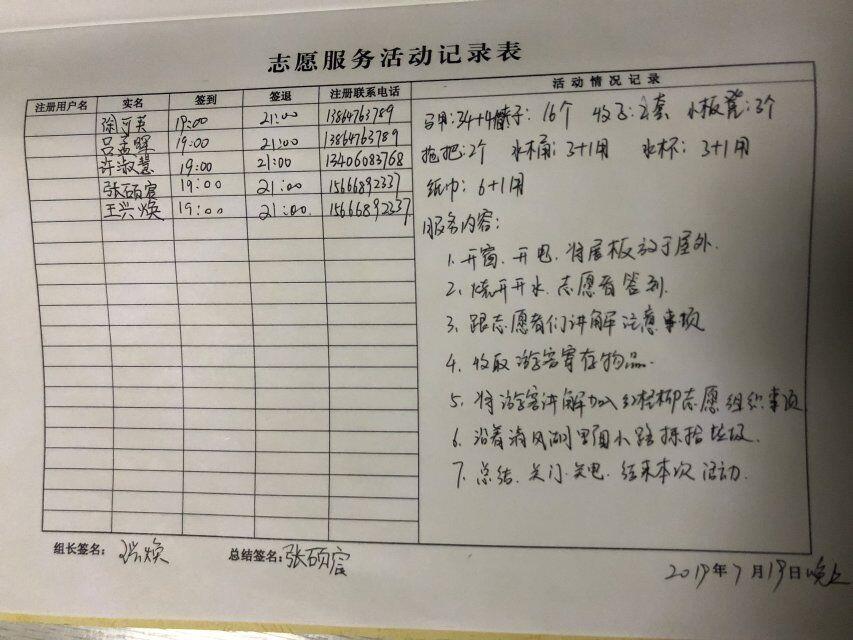 志愿服务活动记录表
注册用户名 实名 签到 签退 注册联系电话 活动情况记录
徐可英 19:00 21:00 13864763789
吕孟晖 19:00 21:00 13864763789
许淑慧 19:00 21:00 13406083768
张硕宸 19:00 21:00 15666892337
王兴焕 19:00 21:00 15666892337
马甲:34+4 帽子:16个 夹子:2套 小板凳:3个
拖把:2个 水桶:3+1用 水杯:3+1用
纸巾:6+1用
服务内容:
1、开窗、开电、将展板放于屋外.
2、烧开开水、志愿者签到.
3、跟志愿者们讲解注意事项
4、收取游客寄存物品.
5、将游客讲解加入红柽柳志愿组织事项
6、沿着清风湖里面小路捡拾垃圾.
7、总结、关门、关电、结束本次活动.
组长签名: 总结签名:张硕宸
2019年7月19日晚上